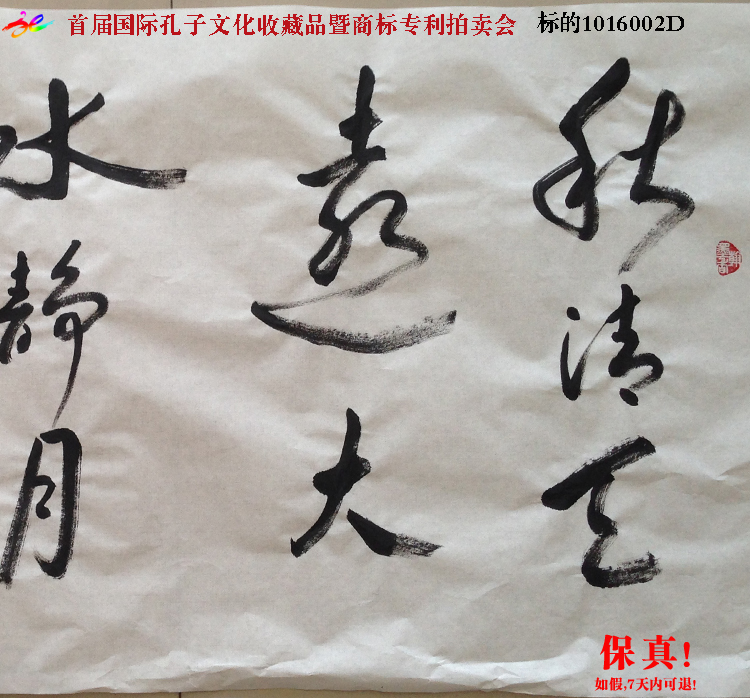 首届国际孔子文化收藏品暨商标专利拍卖会 标的1016002D
秋清天
遠大
水静月
保真!
如假,7天内可退!